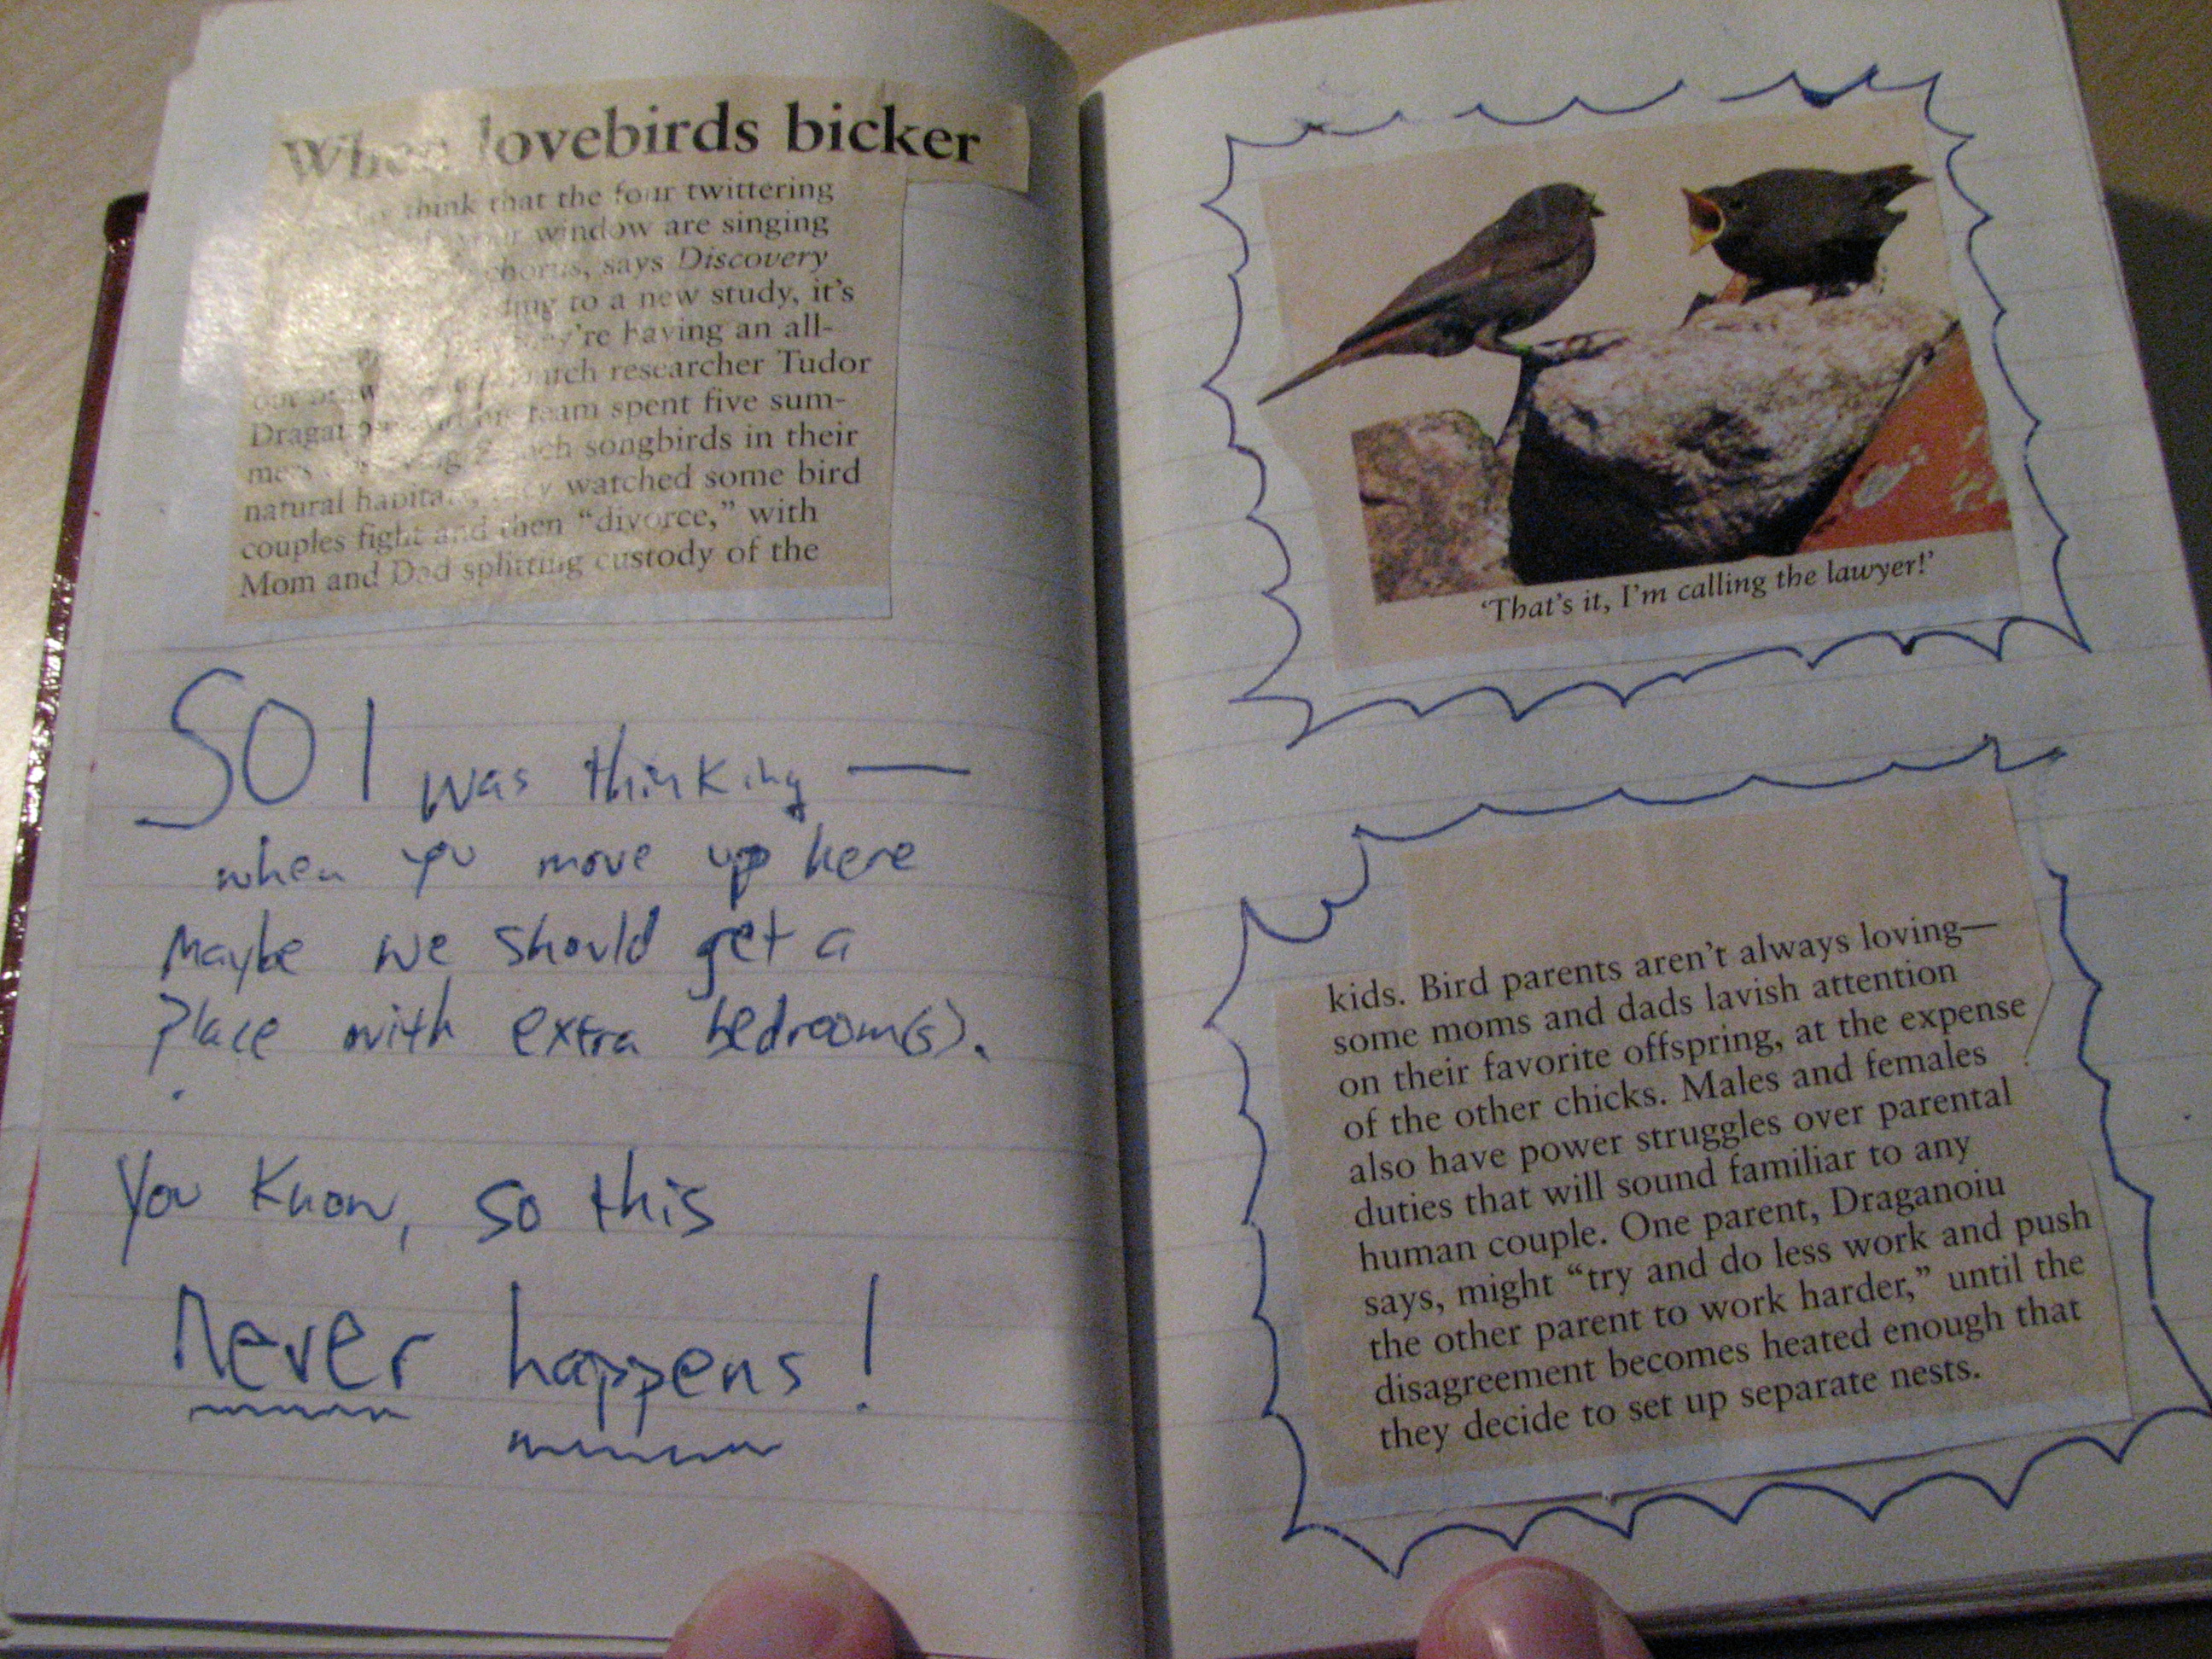 When lovebirds bicker
think that the four twittering
your window are singing
chorus, says Discovery
to a new study, it's
they're having an all-
out researcher Tudor
team spent five sum-
songbirds in their
natural habitat, they watched some bird
couples fight and then "divorce," with
Mom and Dad splitting custody of the
SO I was thinking —
when you move up here
Maybe we should get a
Place with extra bedroom(s).
You Know, so this
Never happens!
'That's it, I'm calling the lawyer!'
kids. Bird parents aren't always loving—
some moms and dads lavish attention
on their favorite offspring, at the expense
of the other chicks. Males and females
also have power struggles over parental
duties that will sound familiar to any
human couple. One parent, Draganoiu
says, might "try and do less work and push
the other parent to work harder," until the
disagreement becomes heated enough that
they decide to set up separate nests.